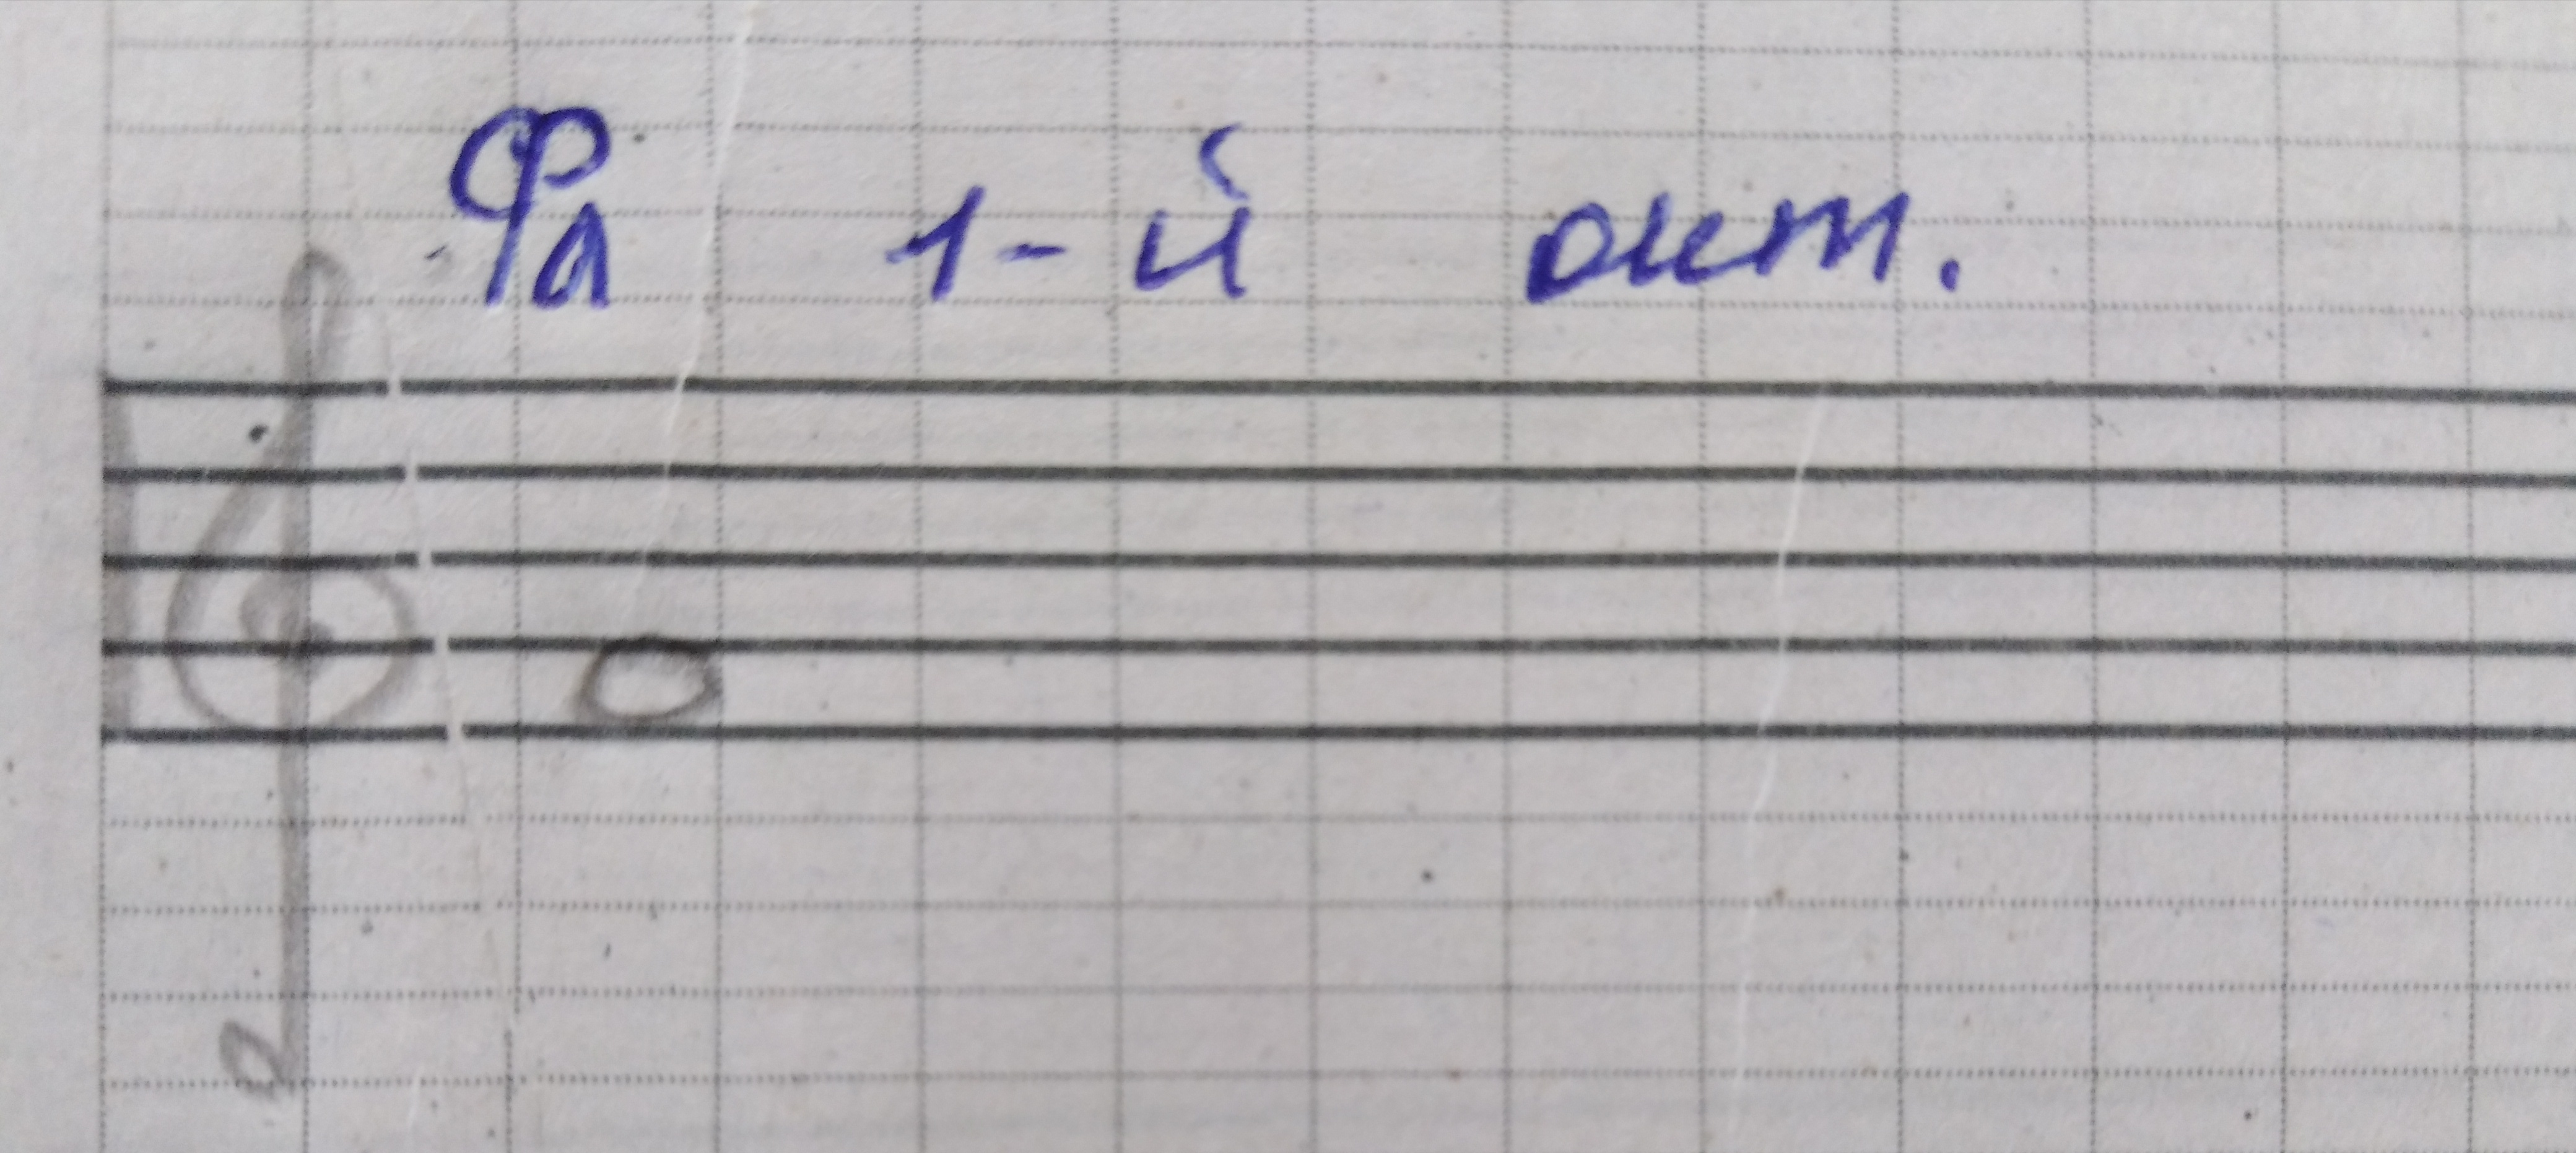 Фа 1-й окт.